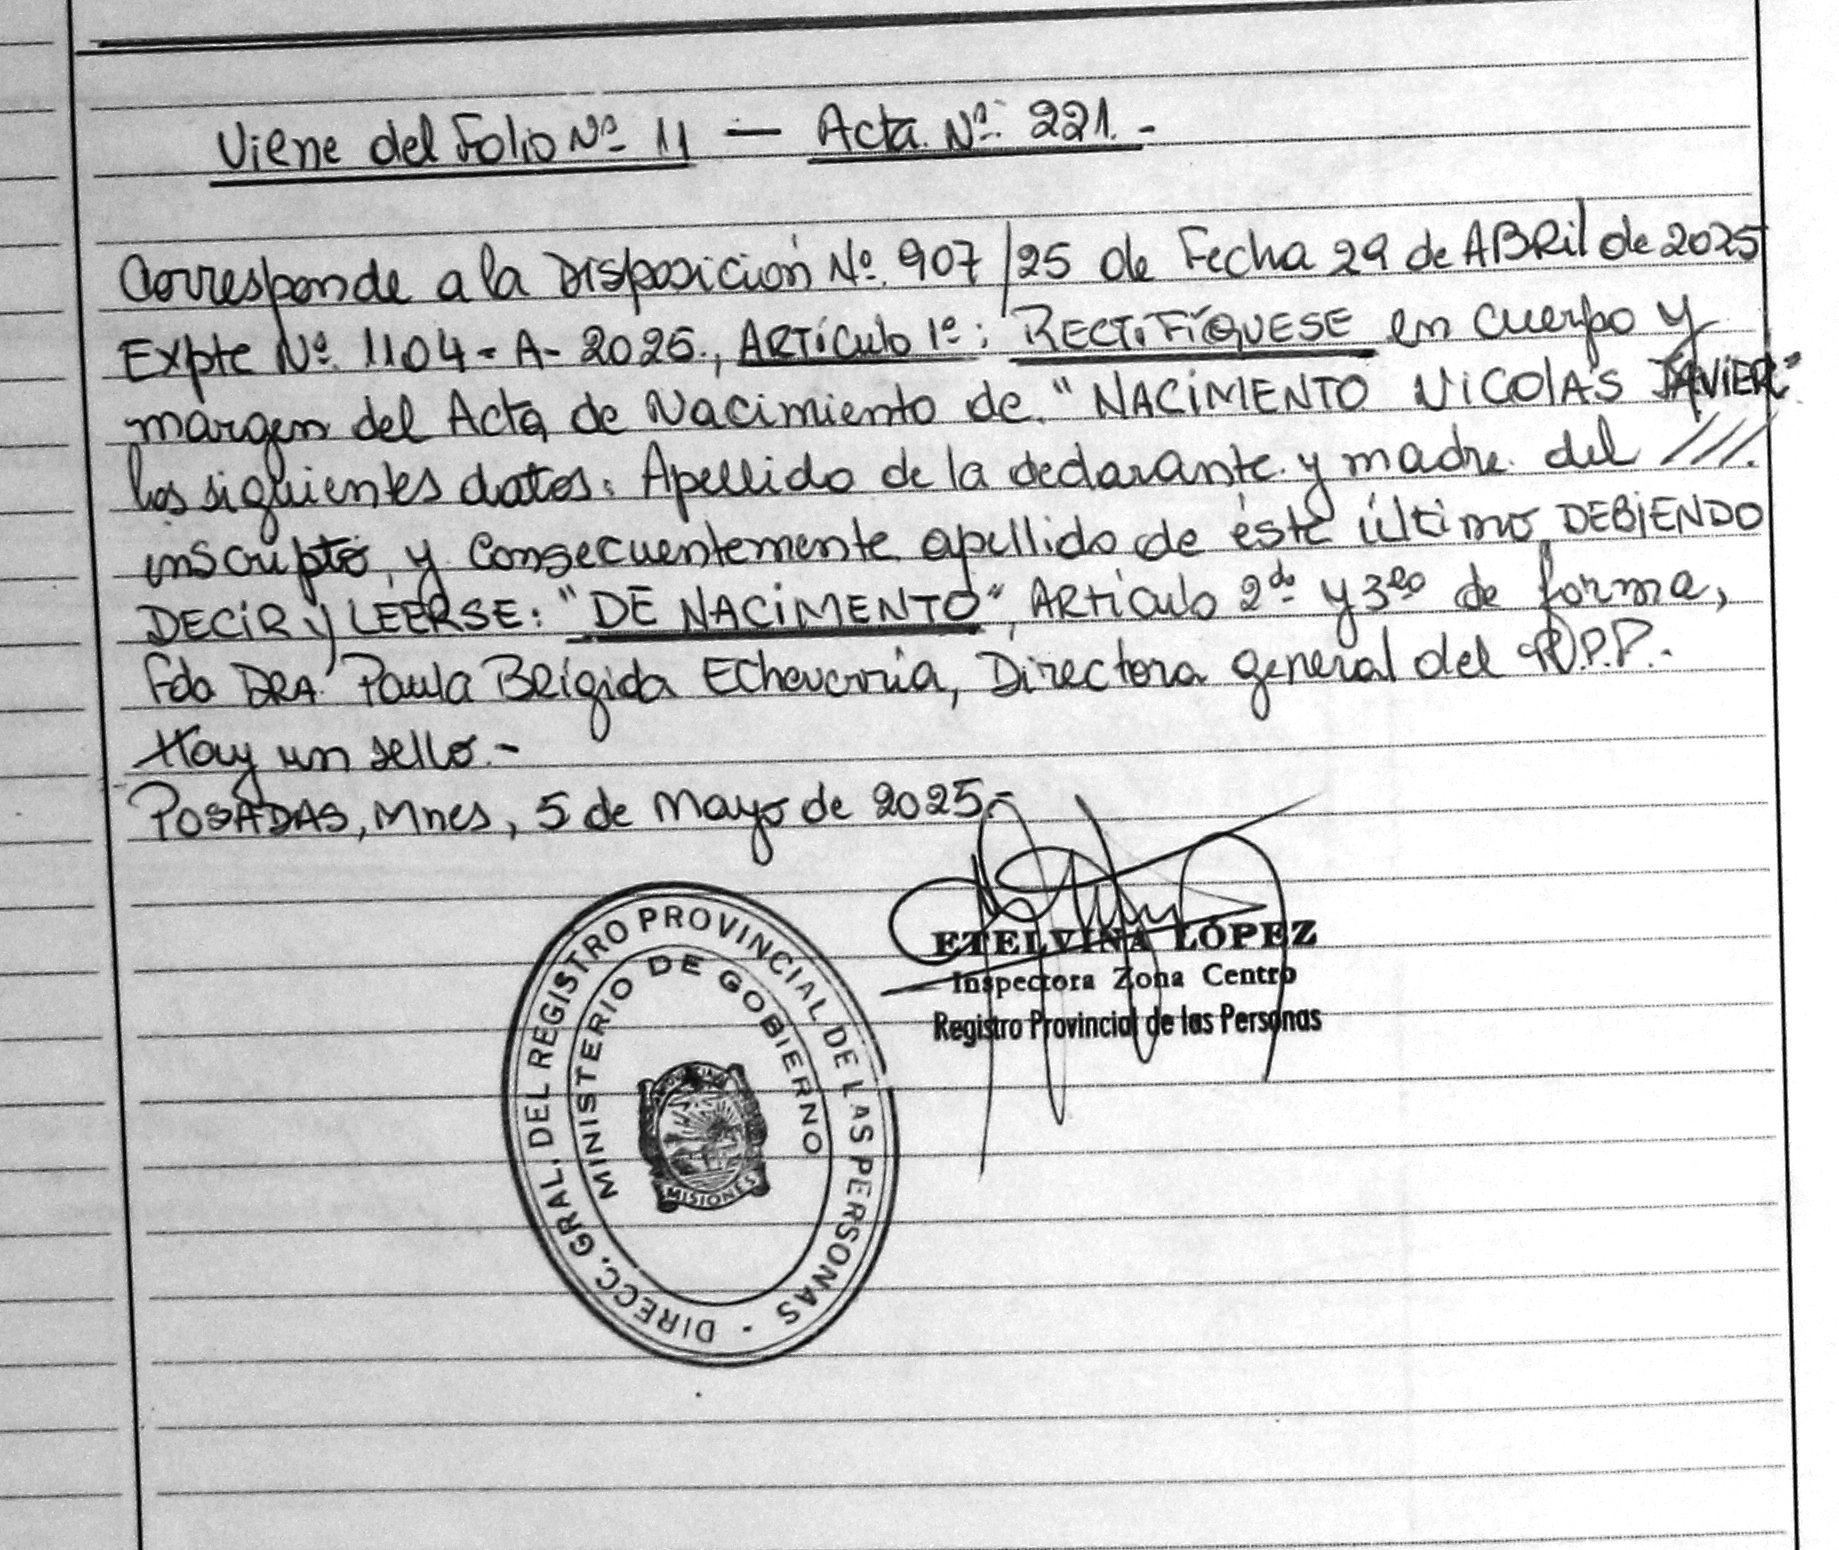 Viene del Folio Nº 11 — Acta Nº 221.-
Corresponde a la Disposición Nº 907/25 de Fecha 29 de ABRil de 2025
Expte Nº 1104-A-2025., ARTÍCulo 1º: RECTIFÍQUESE en cuerpo y
margen del Acta de Nacimiento de "NACIMENTO NICOLÁS JAVIER"
los siguientes datos: Apellido de la declarante y madre del ///.
inscripto, y Consecuentemente apellido de éste último, DEBIENDO
DECIR y LEERSE: "DE NACIMENTO", ARTículo 2do y 3ero de forma,
Fdo DRA. Paula BRígida Echeverría, Directora general del R.P.P.-
Hay un sello.-
POSADAS, Mnes, 5 de Mayo de 2025.-
ETELVINA LÓPEZ
Inspectora Zona Centro
Registro Provincial de las Personas
DIRECC. GRAL. DEL REGISTRO PROVINCIAL DE LAS PERSONAS -
MINISTERIO DE GOBIERNO
MISIONES